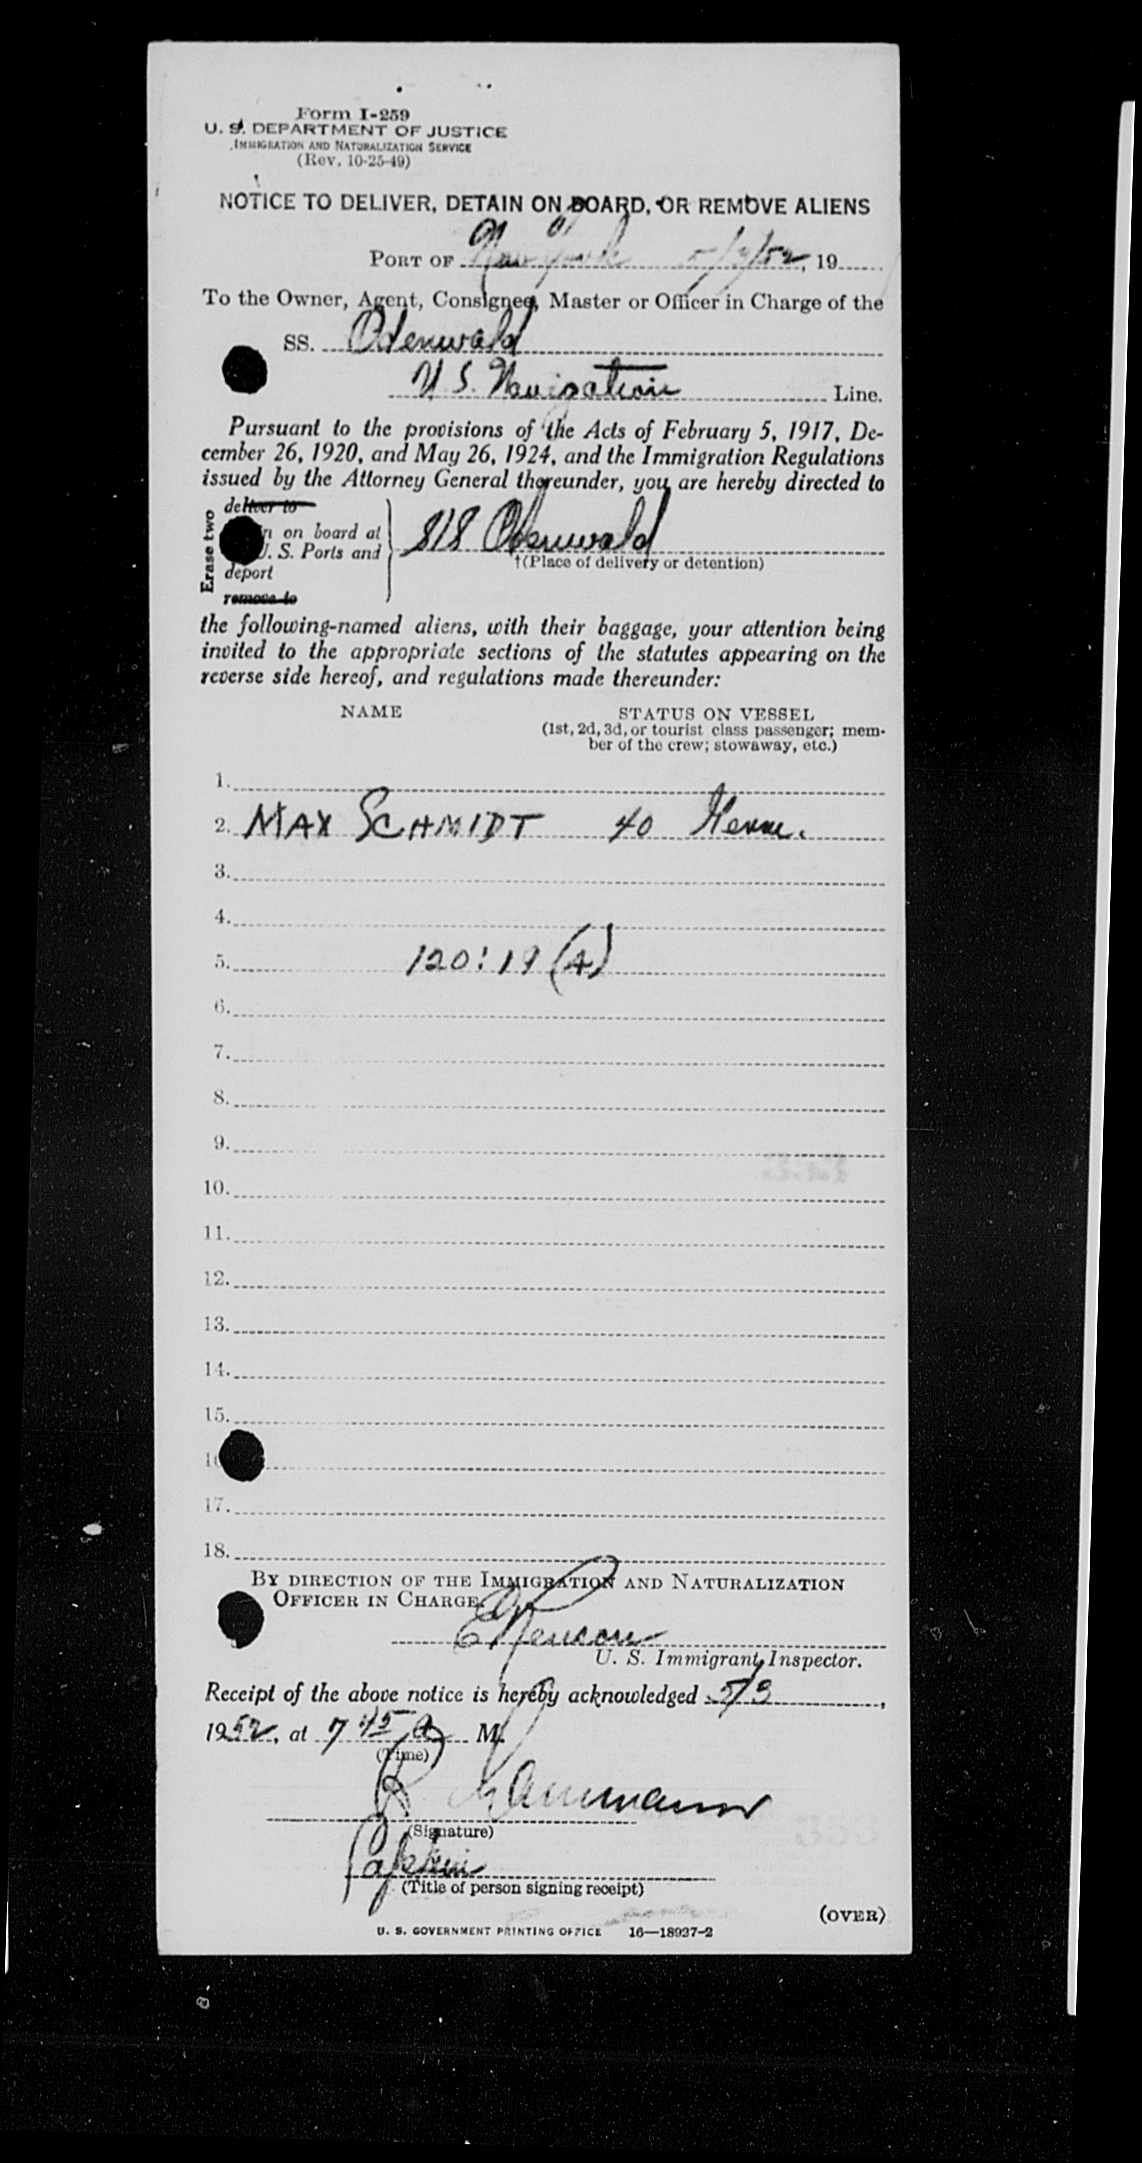 Form I-259
U. S. DEPARTMENT OF JUSTICE
IMMIGRATION AND NATURALIZATION SERVICE
(Rev. 10-25-49)
NOTICE TO DELIVER, DETAIN ON BOARD, OR REMOVE ALIENS
PORT OF New York 5/3/52, 19
To the Owner, Agent, Consignee, Master or Officer in Charge of the
SS. Odenwald
U. S. Navigation Line.
Pursuant to the provisions of the Acts of February 5, 1917, De-
cember 26, 1920, and May 26, 1924, and the Immigration Regulations
issued by the Attorney General thereunder, you are hereby directed to
Erase two
deliver to
n on board at
U. S. Ports and
deport
remove to
S/S Odenwald
†(Place of delivery or detention)
the following-named aliens, with their baggage, your attention being
invited to the appropriate sections of the statutes appearing on the
reverse side hereof, and regulations made thereunder:
NAME STATUS ON VESSEL
(1st, 2d, 3d, or tourist class passenger; mem-
ber of the crew; stowaway, etc.)
1.
2. MAX SCHMIDT 40
3.
4.
5. 120:19 (4)
6.
7.
8.
9.
10.
11.
12.
13.
14.
15.
17.
18.
BY DIRECTION OF THE IMMIGRATION AND NATURALIZATION
OFFICER IN CHARGE.
U. S. Immigrant Inspector.
Receipt of the above notice is hereby acknowledged 5/3,
1952, at 7 45 A M.
(Time)
(Signature)
Captain
(Title of person signing receipt)
(OVER)
U. S. GOVERNMENT PRINTING OFFICE 16—18937-2